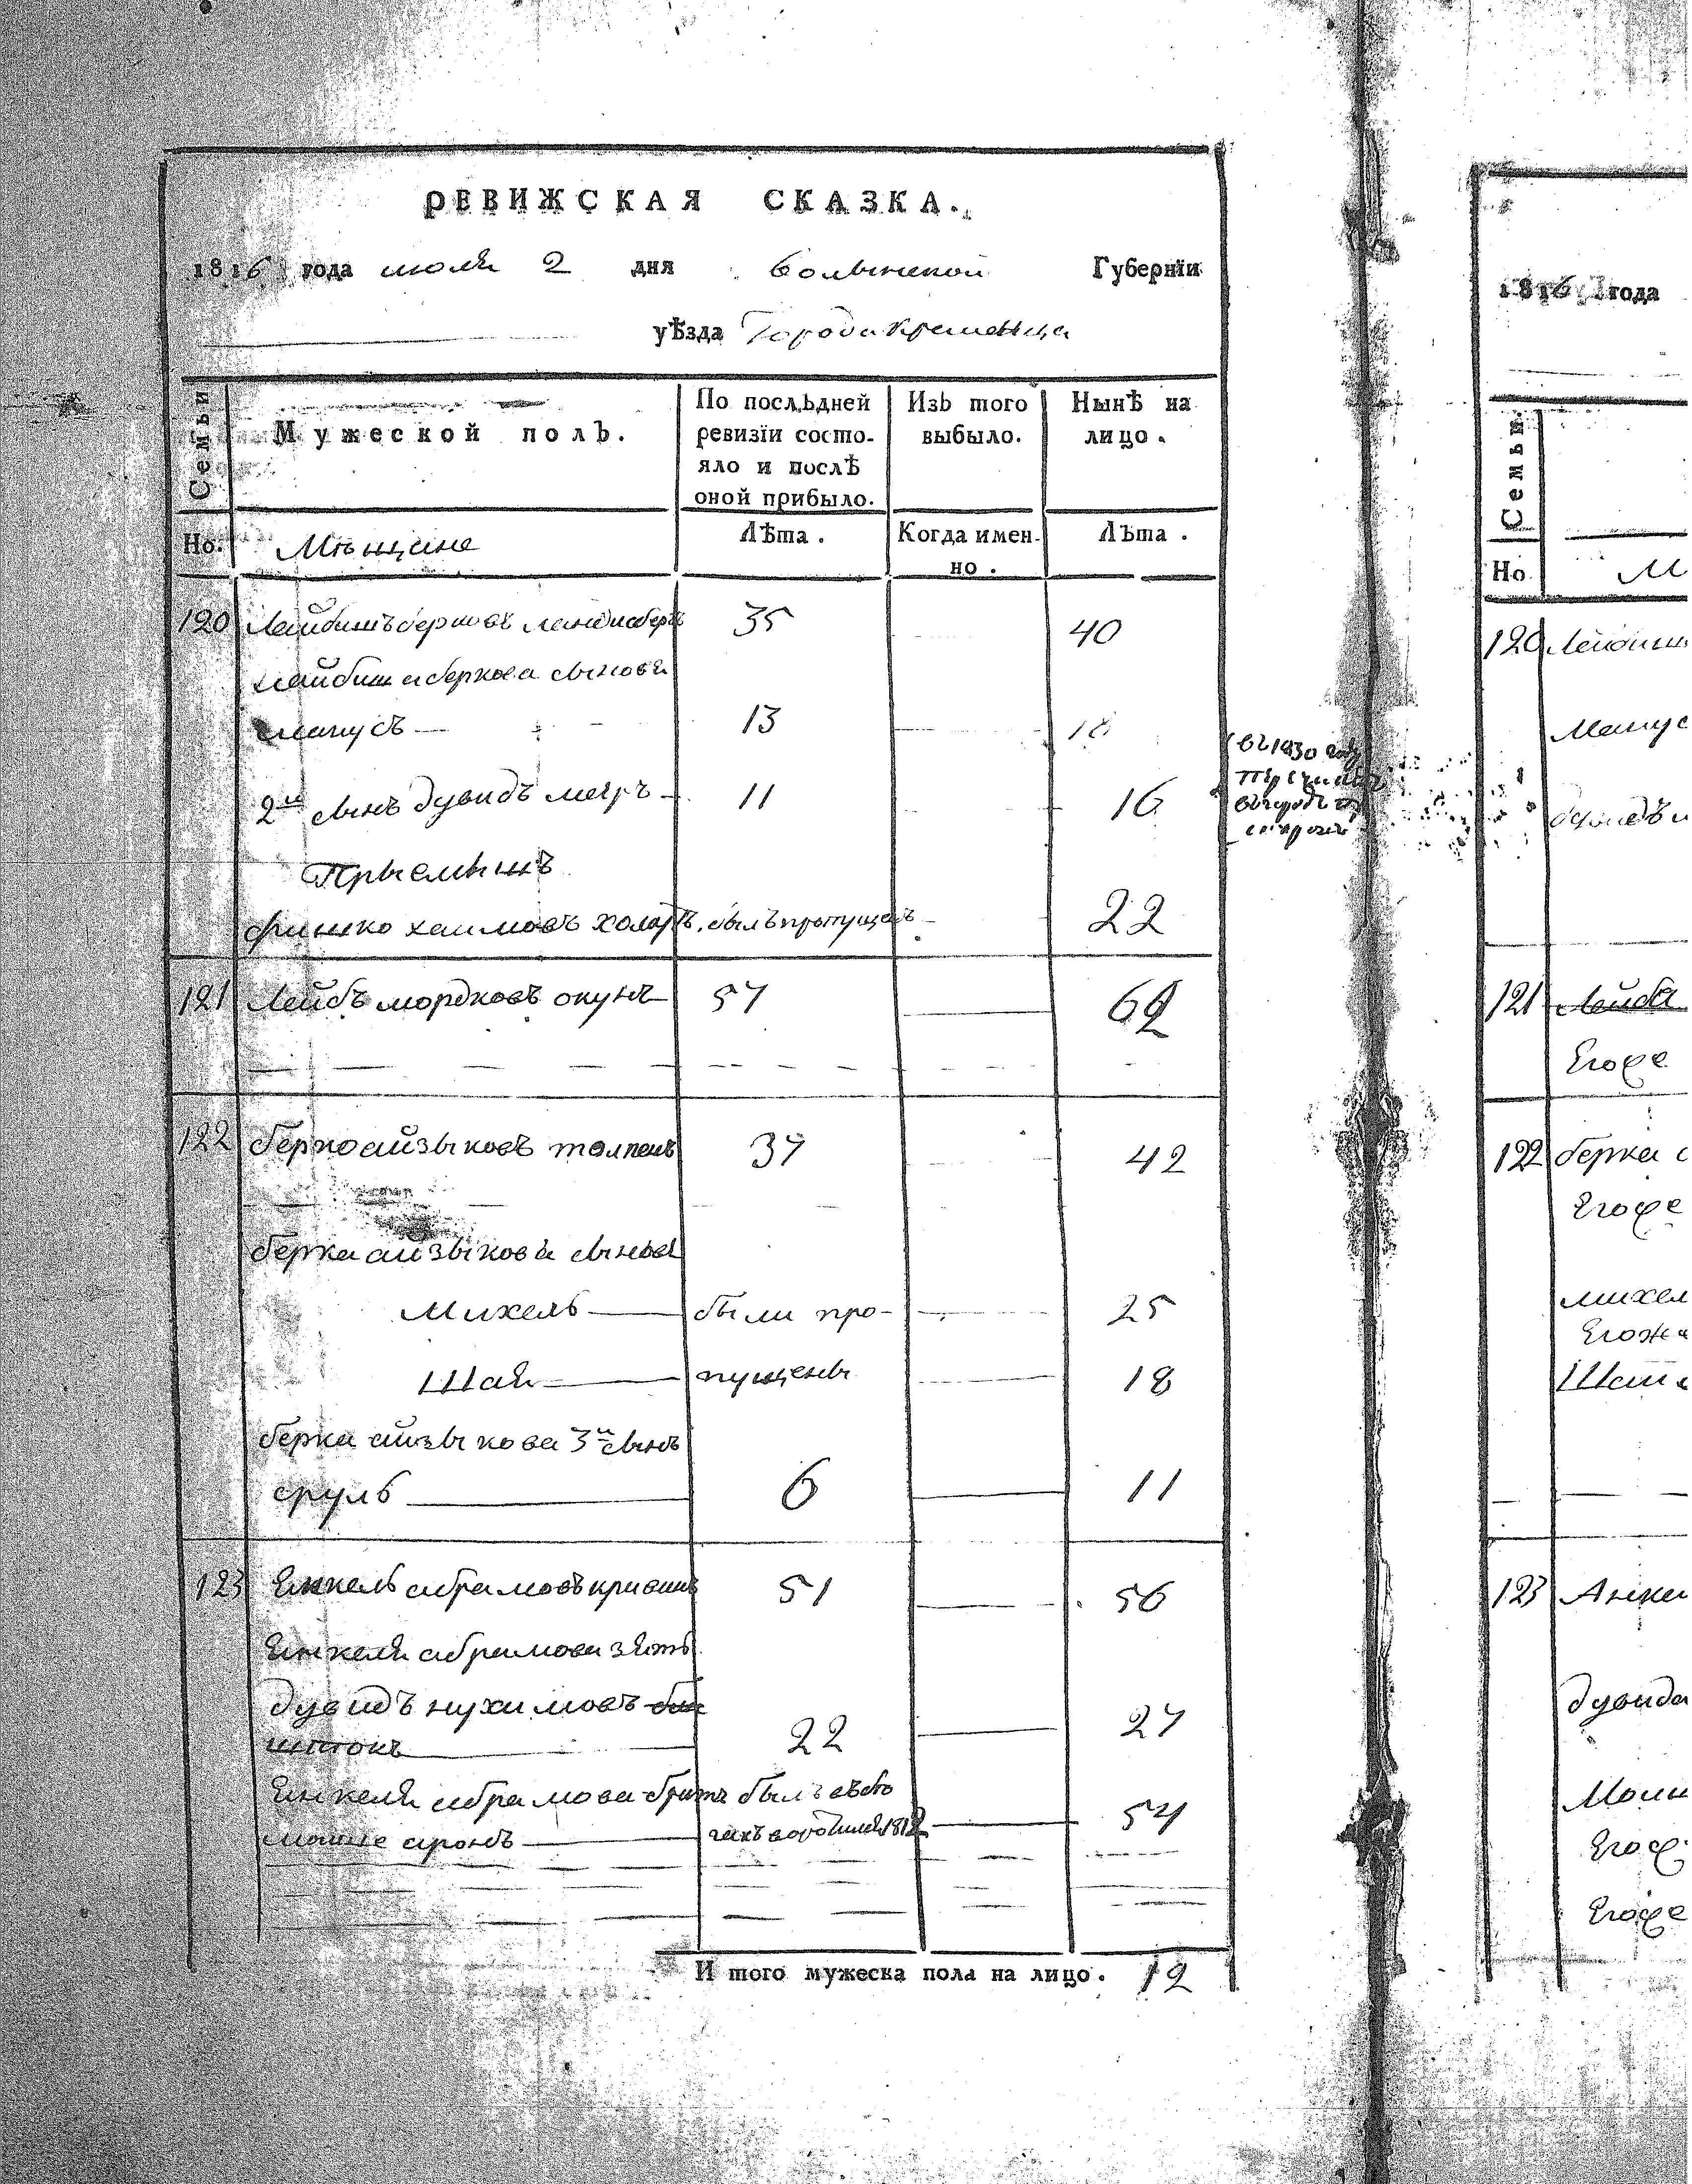 РЕВИЖСКАЯ СКАЗКА.
1816 года июля 2 дня Волынской Губернїи
уѣзда Города Кременца
Семьи
Мужеской полъ.
По послѣдней ревизїи состо-
яло и послѣ
оной прибыло.
Изъ того
выбыло.
Нынѣ на
лицо.
Но. Мещане Лѣта. Когда имен-
но. Лѣта.
120 Лейбишъ берковъ 35 40
лейбиша беркова сынови
манусъ 13 18
2й сынъ дувидъ меяръ 11 16
въ 1830 году
Прыемышъ
фишко хаимовъ былъ пропущенъ 22
121 Лейбъ мордковъ окунь 57 62
122 берко айзыковъ 37 42
берка айзыкова сыновя
Михель были про- 25
Шая пущены 18
берка айзыкова 3й сынъ
сруль 6 11
123 Янкель абрамовъ 51 56
Янкеля абрамова зять
дувидъ нухимовъ
штокъ 22 27
Янкеля абрамова братъ былъ
мошке аронъ 54
И того мужеска пола на лицо. 12
1816 года
Семьи
Но. М
120
Манус
121 Лейба
Егоже
122 берка
Егоже
михел
Егоже
Шаи
123 Анке
дувида
Мош
Егож
Егоже